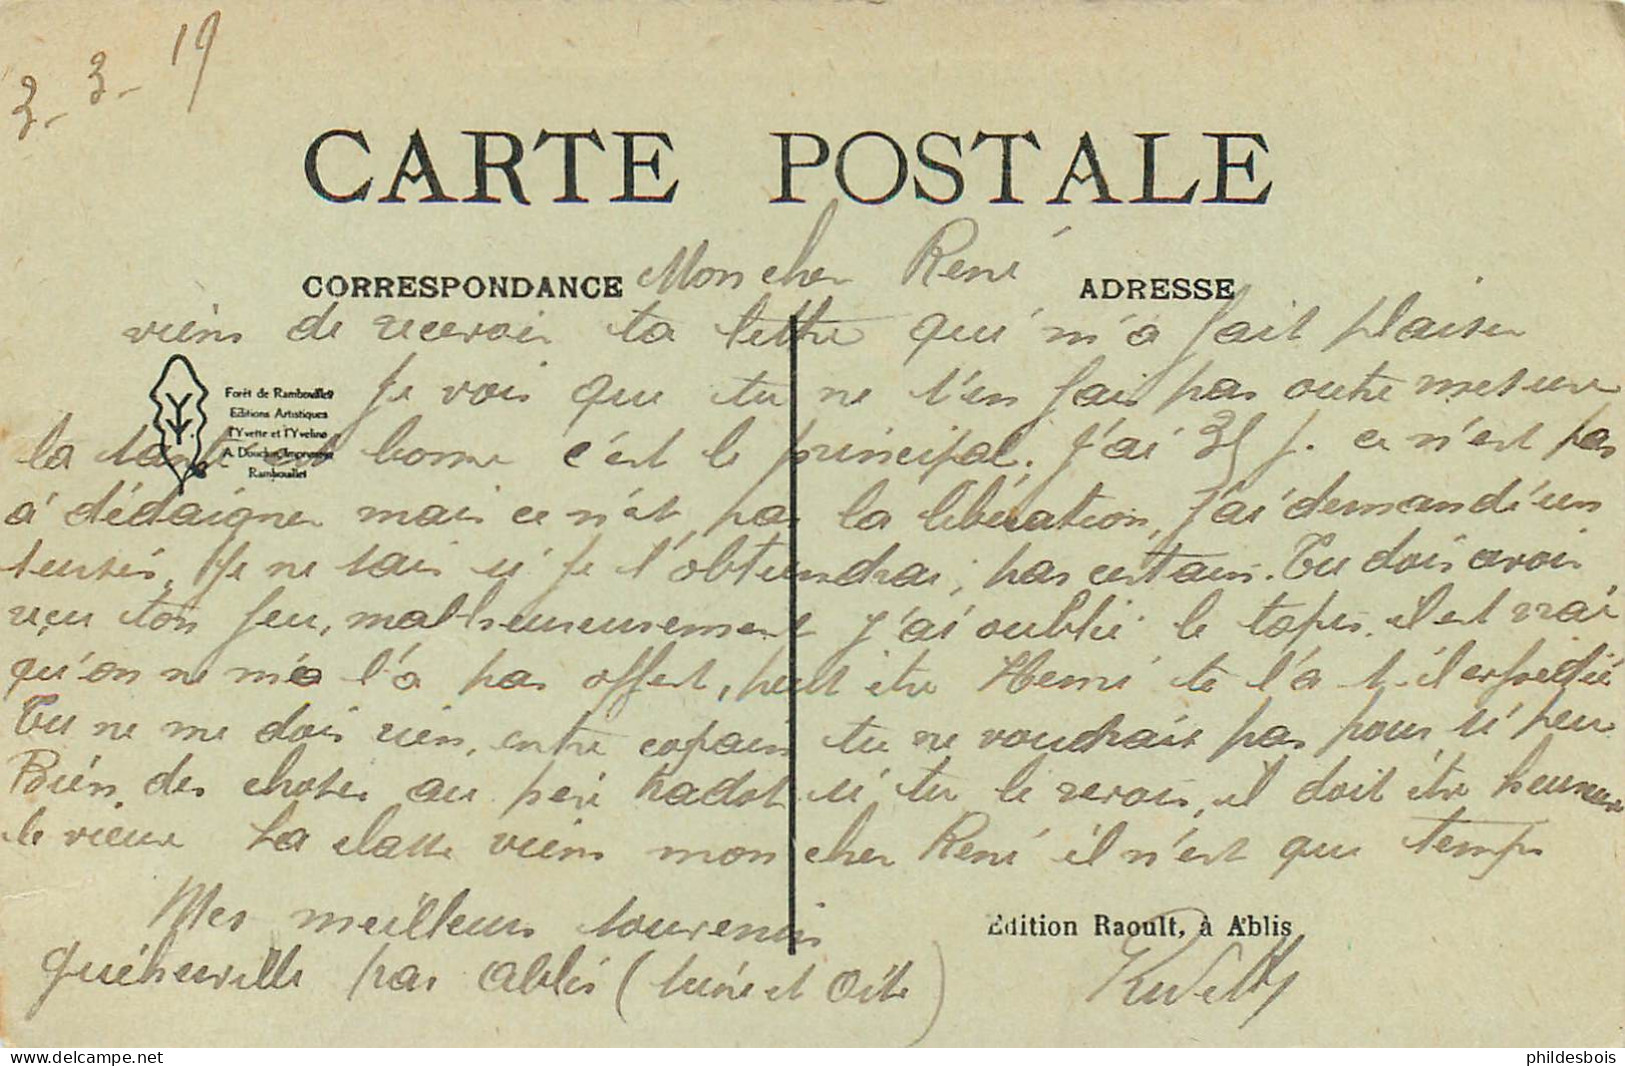 3-3-19
CARTE POSTALE
CORRESPONDANCE Mon cher René ADRESSE
viens de recevoir ta lettre qui m'a fait plaisir
Forêt de Rambouillet
Editions Artistiques
l'Yvette et l'Yveline
A. Douchin, Imprimeur
Rambouillet
Je vois que tu ne t'en fais pas outre mesure
la santé est bonne c'est le principal. J'ai 35 j. ce n'est pas
à dédaigner mais ce n'est pas la libération, j'ai demandé un
sursis, je ne sais si je l'obtiendrai, pas certain. Tu dois avoir
reçu ton feu, malheureusement j'ai oublié le tapis, il est vrai
qu'on ne me l'a pas offert, peut être Henri te l'a t-il expédié
Tu ne me dois rien, entre copain tu ne voudrais pas pour si peu
Bien des choses au père Kadot si tu le revois, il doit être heureux
le vieux La classe viens mon cher René il n'est que temps
Mes meilleurs souvenirs
Edition Raoult, à Ablis
par Ablis (Seine et Oise)